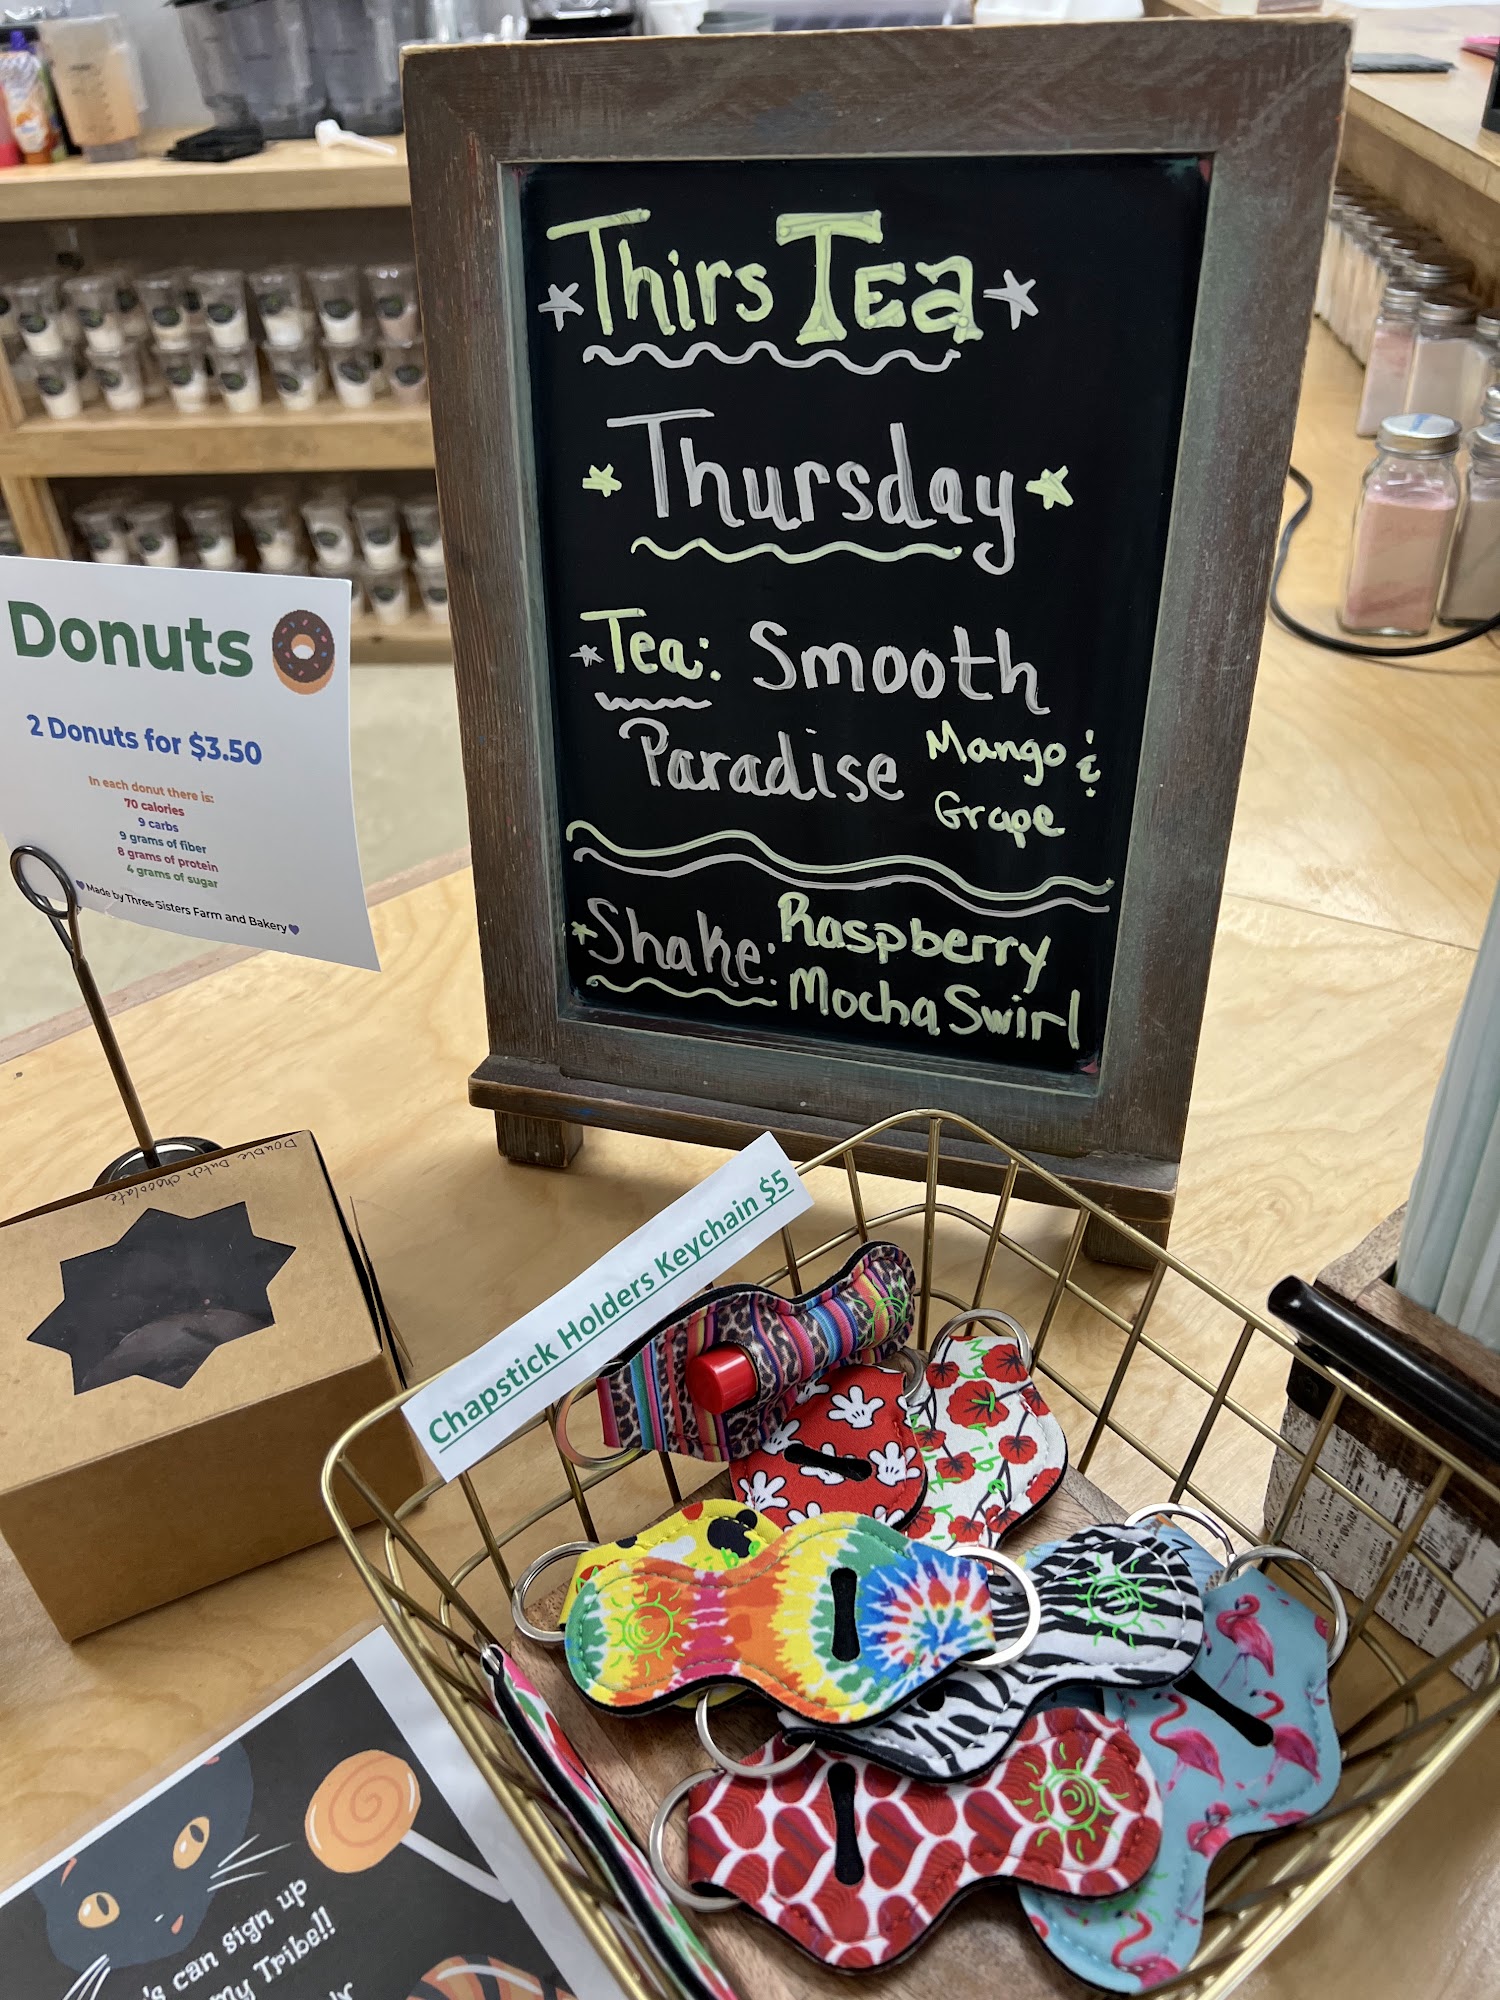 ThirsTea
Thursday
Tea: Smooth
Paradise Mango &
Grape
Shake: Raspberry
Mocha Swirl
Donuts
2 Donuts for $3.50
In each donut there is:
70 calories
9 carbs
9 grams of fiber
8 grams of protein
4 grams of sugar
Made by Three Sisters Farm and Bakery
Double Dutch chocolate
Chapstick Holders Keychain $5
My Tribe
's can sign up
my Tribe!!